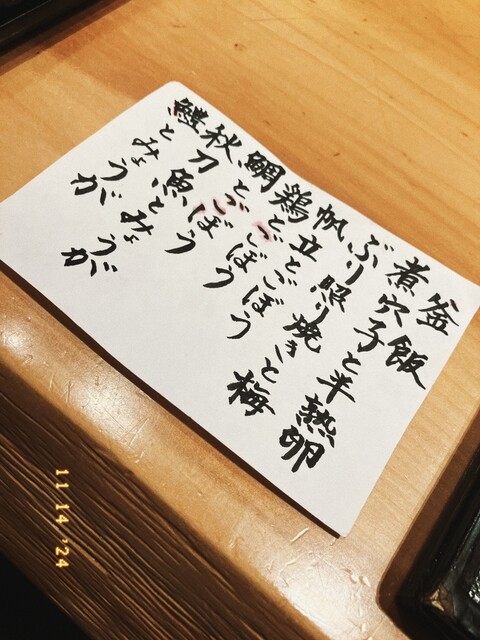 釜飯
煮穴子と半熟卵
ぶり照り焼きと梅
帆立とごぼう
鶏とごぼう
鯛とごぼう
秋刀魚とみょうが
鱧とみょうが
11 14 '24